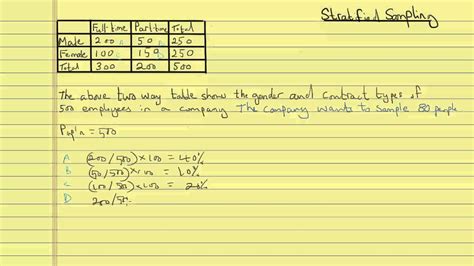 Stratified Sampling
Full-time Part time Total
Male 200 50 250
Female 100 150 250
Total 300 200 500
The above two way table show the gender and contract types of
500 employees in a company The company wants to sample 80 people
Pop'n = 500
A (200/500)×100 = 40%
B (50/500)×100 = 10%
C (100/500)×100 = 20%
D 200/50